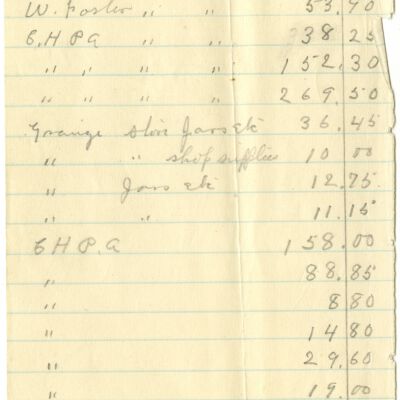 W. Foster " " 53.90
C.H P.A " " 38 25
" " " " 152.30
" " " " 269.50
Grange store Jars Etc 36.45
" " shop supplies 10 00
" Jars Etc 12.75
" " 11.15
C H P.A 158.00
" 88.85
" 8 80
" 14 80
" 29.60
" 19.00